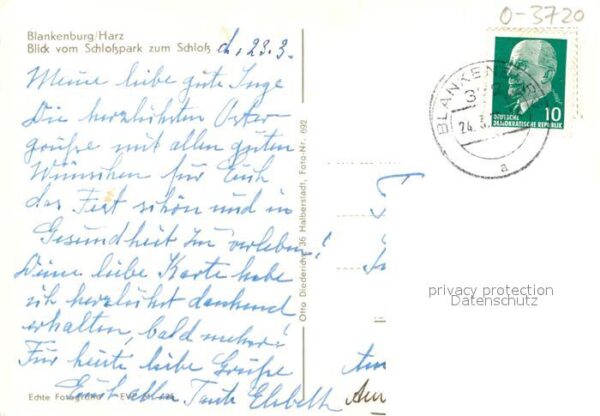 O-3720
Blankenburg/Harz
Blick vom Schloßpark zum Schloß d. 23.3.
Meine liebe gute Inge
Die herzlichsten Oster-
grüße mit allen guten
Wünschen für Euch
das Fest schön und in
Gesundheit zu verleben!
Deine liebe Karte habe
ich herzlichst dankend
erhalten, bald mehr!
Für heute liebe Grüße
Euch allen Tante Elsbeth
Echte Fotografie
Otto Diederich 36 Halberstadt, Foto-Nr. 692
BLANKENBURG
24.3.
a
10
DEUTSCHE
DEMOKRATISCHE REPUBLIK
privacy protection
Datenschutz